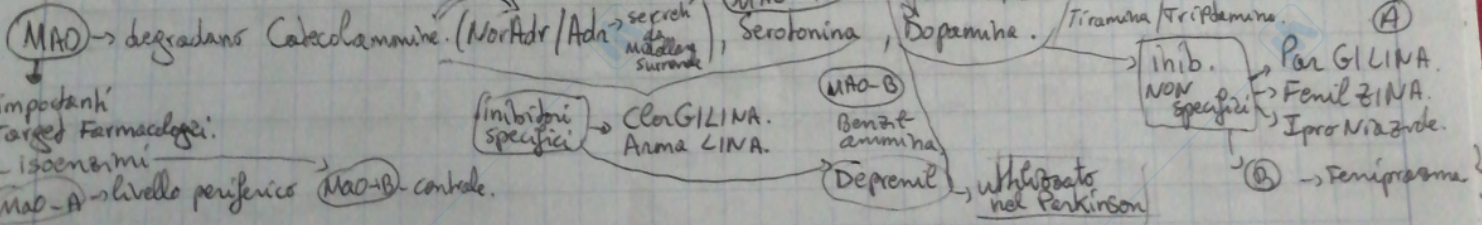 MAO → degradano Catecolammine. (NorAdr/Adr → secreti da Midollare Surrenale), Serotonina, Dopamina. / Tiramina/Triptamina. A
importanti
Target Farmacologici.
- isoenzimi
MAO-A → livello periferico MAO-B - centrale.
inibitori specifici → ClorGILINA.
ArmaLINA.
MAO-B
Benzil-
ammina
Deprenil → utilizzato
nel Parkinson
inib.
NON
specifici
→ ParGILINA.
→ FenilZINA.
→ IproNiazide.
B → Feniprazina